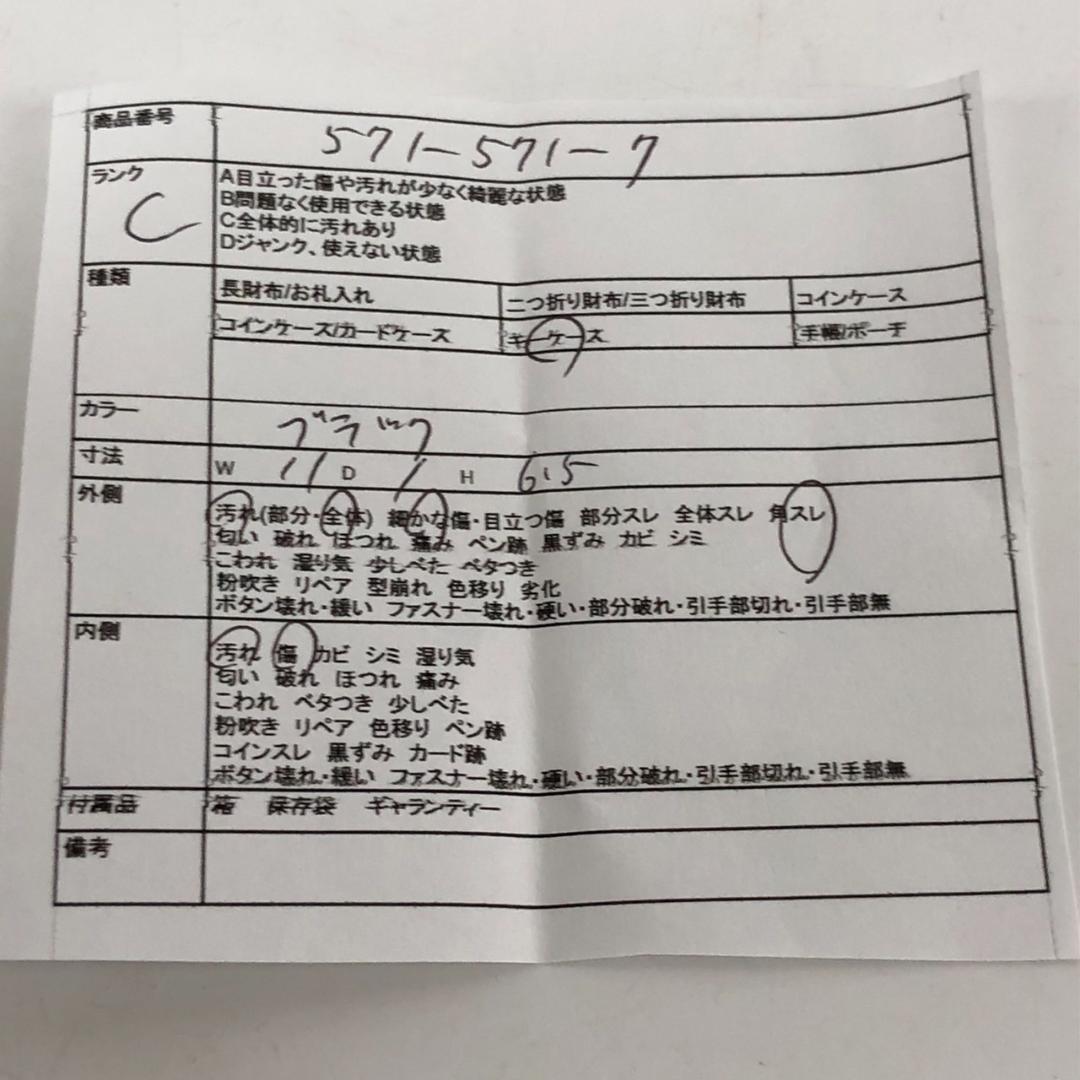 商品番号 571-571-7
ランク C
A目立った傷や汚れが少なく綺麗な状態
B問題なく使用できる状態
C全体的に汚れあり
Dジャンク、使えない状態
種類
長財布/お札入れ 二つ折り財布/三つ折り財布 コインケース
コインケース/カードケース キーケース 手帳/ポーチ
カラー ブラック
寸法 W 11 D 1 H 6.5
外側
汚れ(部分・全体) 細かな傷・目立つ傷 部分スレ 全体スレ 角スレ
匂い 破れ ほつれ 痛み ペン跡 黒ずみ カビ シミ
こわれ 湿り気 少しべた ベタつき
粉吹き リペア 型崩れ 色移り 劣化
ボタン壊れ・緩い ファスナー壊れ・硬い・部分破れ・引手部切れ・引手部無
内側
汚れ 傷 カビ シミ 湿り気
匂い 破れ ほつれ 痛み
こわれ ベタつき 少しべた
粉吹き リペア 色移り ペン跡
コインスレ 黒ずみ カード跡
ボタン壊れ・緩い ファスナー壊れ・硬い・部分破れ・引手部切れ・引手部無
付属品 箱 保存袋 ギャランティー
備考